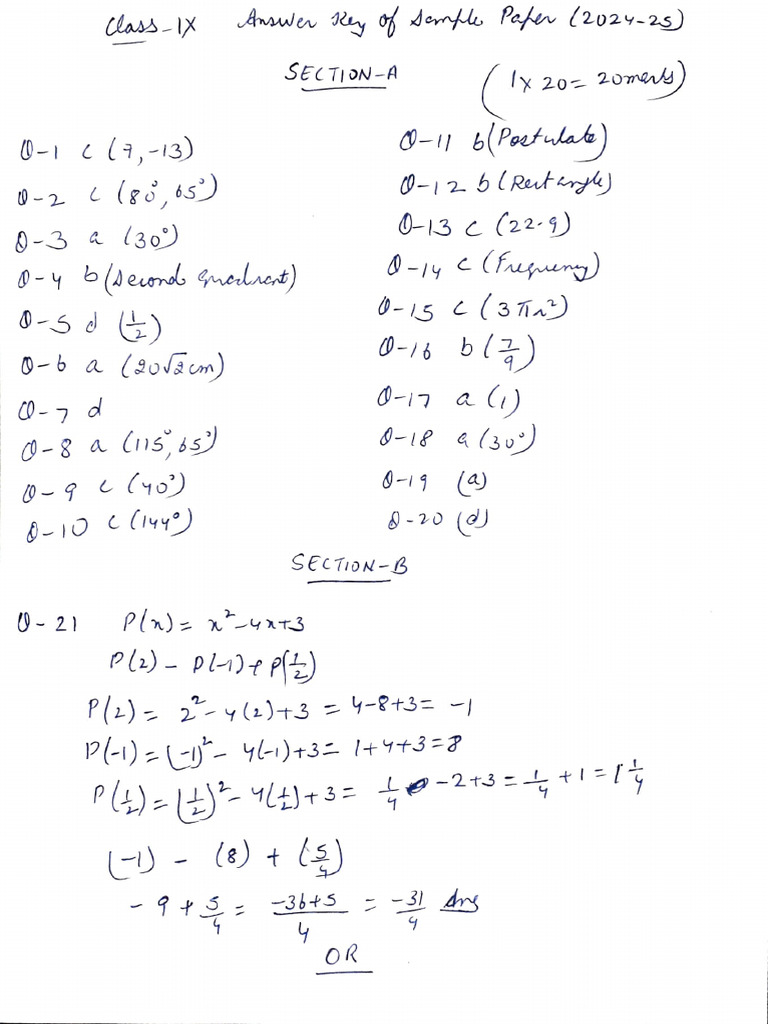 Class-IX Answer Key of Sample Paper (2024-25)
SECTION-A
(1 x 20 = 20 marks)
Q-1 c (7,-13)
Q-2 c (80°, 65°)
Q-3 a (30°)
Q-4 b (Second quadrant)
Q-5 d (1/2)
Q-6 a (20√2 cm)
Q-7 d
Q-8 a (115°, 65°)
Q-9 c (40°)
Q-10 c (144°)
Q-11 b (Postulate)
Q-12 b (Rectangle)
Q-13 c (22.9)
Q-14 c (Frequency)
Q-15 c (3πr²)
Q-16 b (7/9)
Q-17 a (1)
Q-18 a (30°)
Q-19 (a)
Q-20 (d)
SECTION-B
Q-21 P(x) = x²-4x+3
P(2) - P(-1) + P(1/2)
P(2) = 2² - 4(2)+3 = 4-8+3 = -1
P(-1) = (-1)² - 4(-1)+3 = 1+4+3=8
P(1/2) = (1/2)² - 4(1/2)+3 = 1/4 -2+3 = 1/4 + 1 = 1 1/4
(-1) - (8) + (5/4)
-9 + 5/4 = -36+5/4 = -31/4 Ans
OR